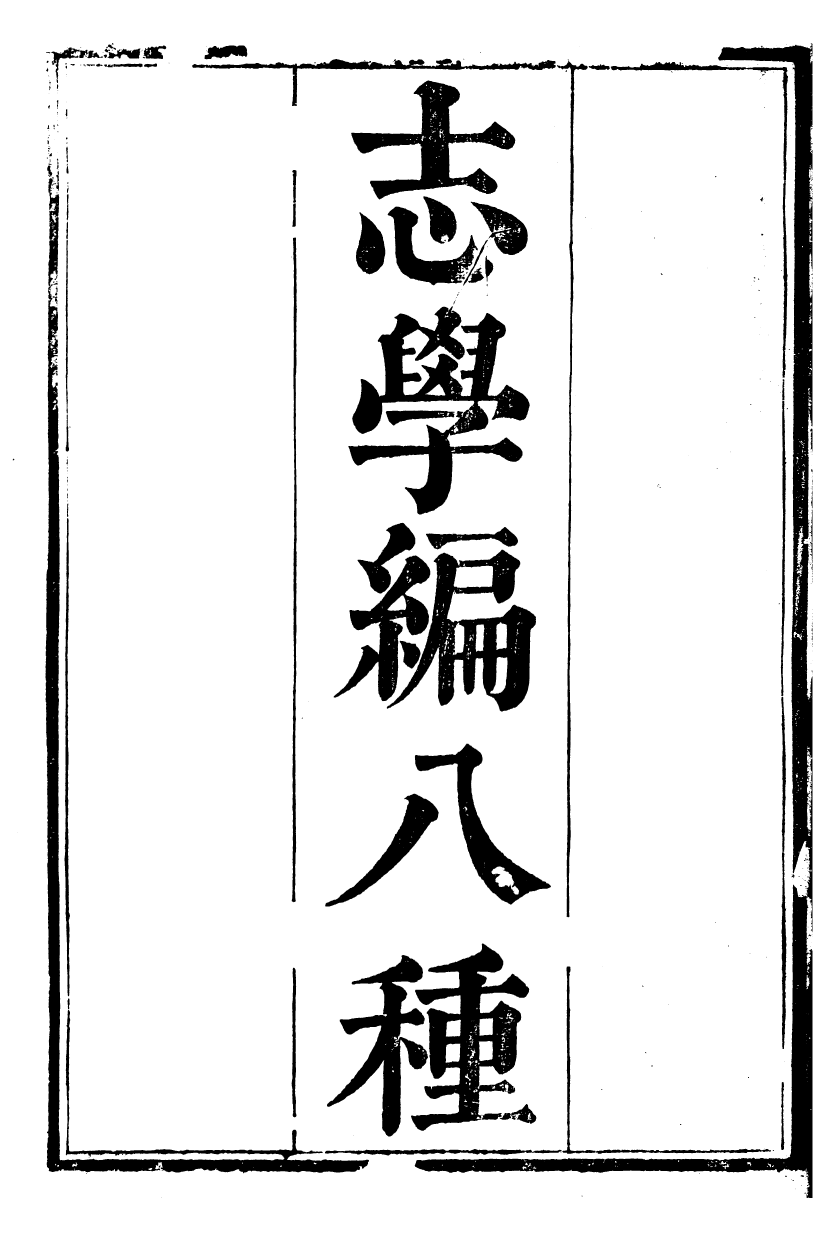 志學編八種